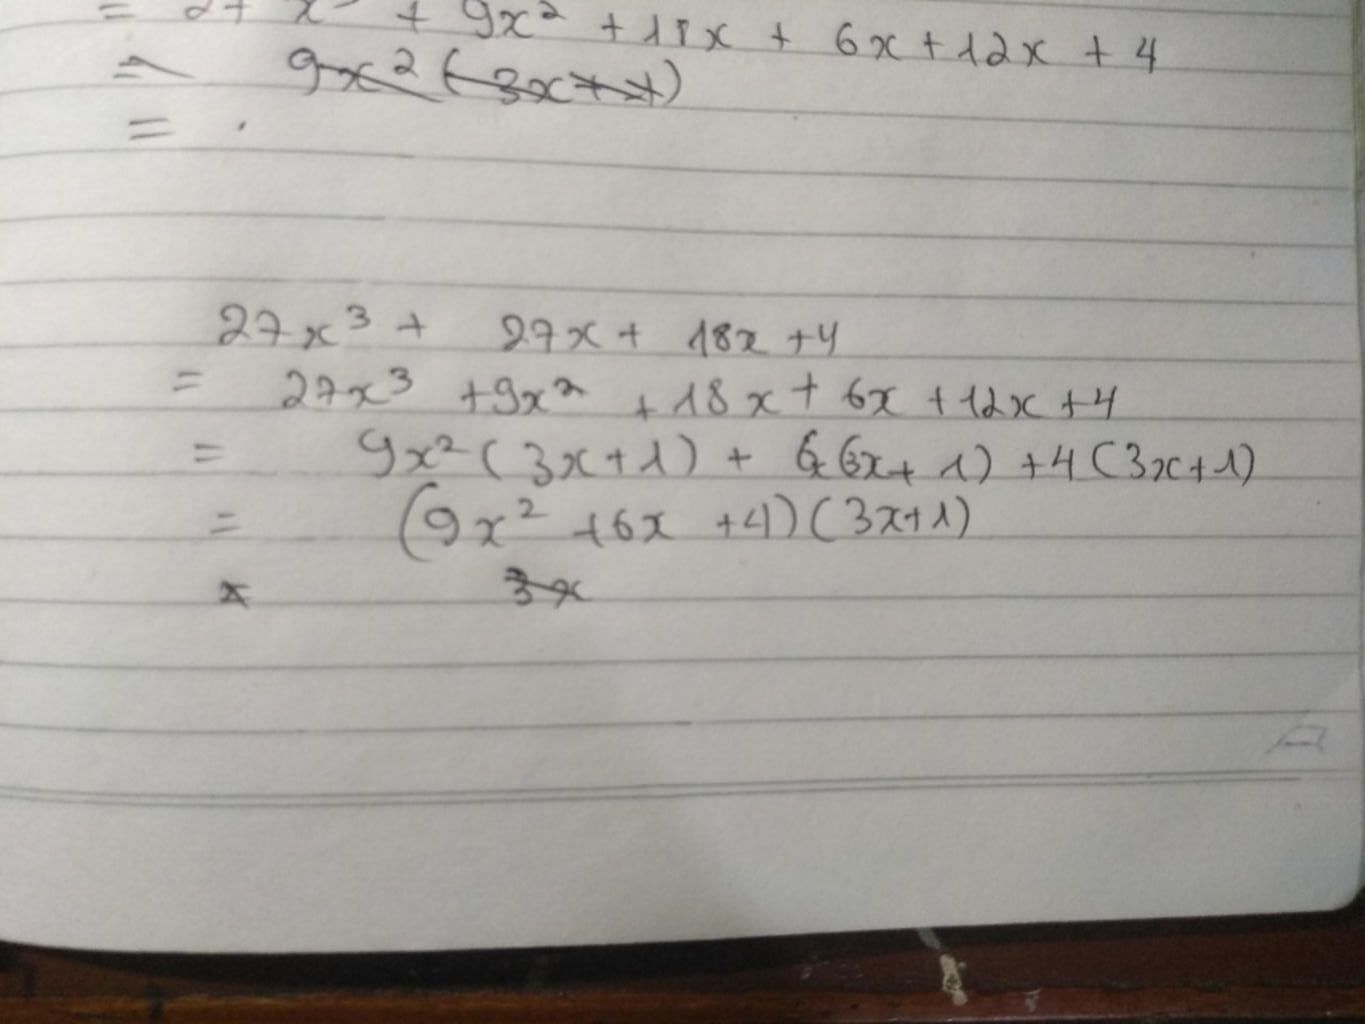 = 27 x³ + 9x² + 18x + 6x + 12x + 4
= 9x² (3x + 1)
= .
27x³ + 27x + 18x + 4
= 27x³ + 9x² + 18x + 6x + 12x + 4
= 9x² (3x + 1) + 6x (3x + 1) + 4 (3x + 1)
= (9x² + 6x + 4) (3x + 1)
x 3x